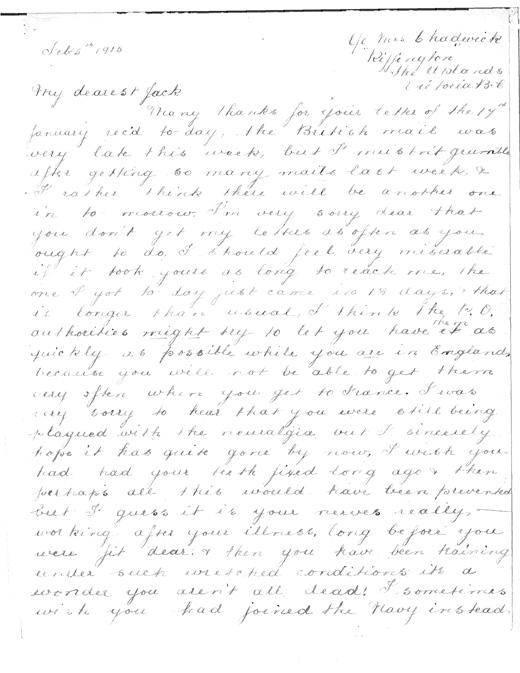 C/o Mrs Chadwick
Feb 5th 1916 "Kiffington"
The Uplands
Victoria B.C
My dearest Jack
Many thanks for your letter of the 17th
January rec'd to-day, the British mail was
very late this week, but I mustn't grumble
after getting so many mails last week, &
I rather think there will be another one
in to morrow. I'm very sorry dear that
you don't get my letters as often as you
ought to do, I should feel very miserable
if it took yours as long to reach me, the
one I got to day just came in 18 days, & that
is longer than usual, I think the P.O.
authorities might try to let you have them as
quickly as possible while you are in England,
because you will not be able to get them
very often when you get to France. I was
very sorry to hear that you were still being
plagued with the neuralgia but I sincerely
hope it has quite gone by now, I wish you
had had your teeth fixed long ago & then
perhaps all this would have been prevented
but I guess it is your nerves really, —
working after your illness, long before you
were fit dear, & then you have been training
under such wretched conditions its a
wonder you aren't all dead! I sometimes
wish you had joined the Navy instead